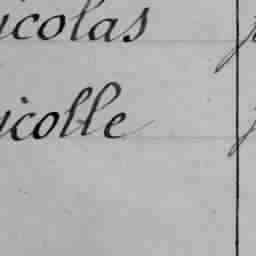 icolas
icolle